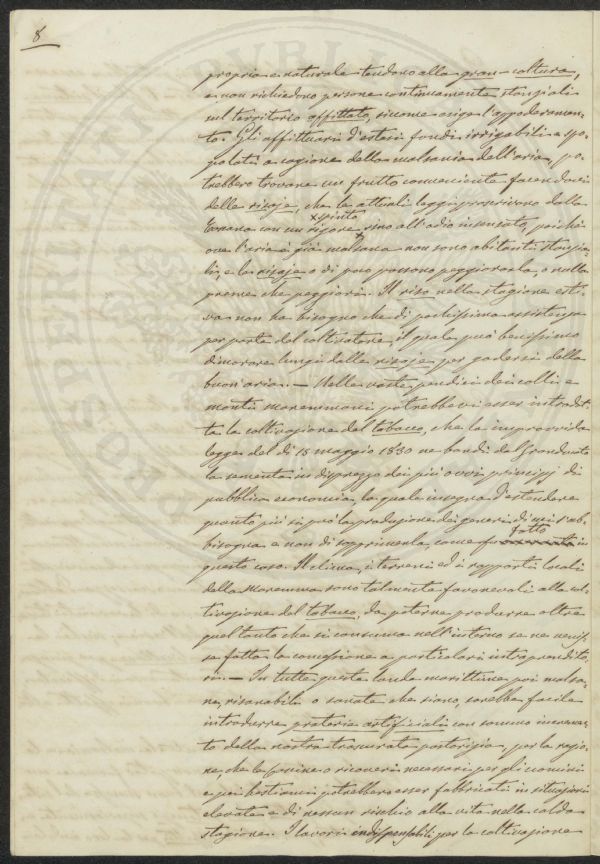 8
propria e naturale tendono alla gran-coltura,
e non richiedono persone continuamente stanziali
sul territorio affittato, siccome esige l'appoderamen-
to. Gli affittuarii d'estesi fondi irrigabili e spo-
polati a cagione della malsania dell'aria, po-
trebbero trovare un frutto conveniente facendovi
delle risaje, che le attuali leggi proscrivono dalla
Toscana con un rigore spinto sino all'odio insensato, poichè
ove l'aria è già malsana non sono abitanti stanzia-
li, e le risaje o di poco possono peggiorarla, o nulla
preme che peggiori. Il riso nella stagione esti-
va non ha bisogno che di pochissima assistenza
per parte del coltivatore, il quale può benissimo
dimorare lungi dalle risaje per godersi della
buon'aria. — Nelle vaste pendici dei colli e
monti maremmani potrebbevi esser introdot-
ta la coltivazione del tabacco, che la improvvida
legge del dì 15 maggio 1830 ne bandì dal Granducato
la sementa in disprezzo dei più ovvi principj di
pubblica economia, la quale insegna d'estendere
quanto più si può la produzione dei generi di cui s'ab-
bisogna e non di sopprimerla, come fu fatto in
questo caso. Il clima, i terreni ed i rapporti locali
della Maremma sono talmente favorevoli alla col-
tivazione del tabacco, da poterne produrre oltre
quel tanto che si consuma nell'interno se ne venis-
se fatta la concessione a particolari intraprendito-
ri. — In tutte queste lande marittime poi malsa-
ne, risanabili o sanate che siano, sarebbe facile
introdurre praterie artificiali con sommo incremen-
to della nostra trascurata pastorizia, per la ragio-
ne, che le cascine o ricoveri necessari per gli uomini
e pei bestiami potrebbero esser fabbricati in situazioni
elevate e di nessun rischio alla vita nella calda
stagione. I lavori indispensabili per la coltivazione